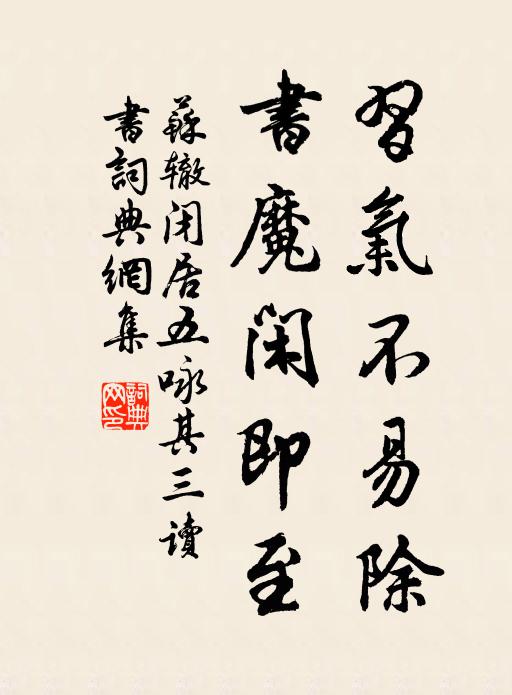 習氣不易除
書魔閑即至
蘇轍閉居五咏其三讀
書詞典網集
詞典
网印